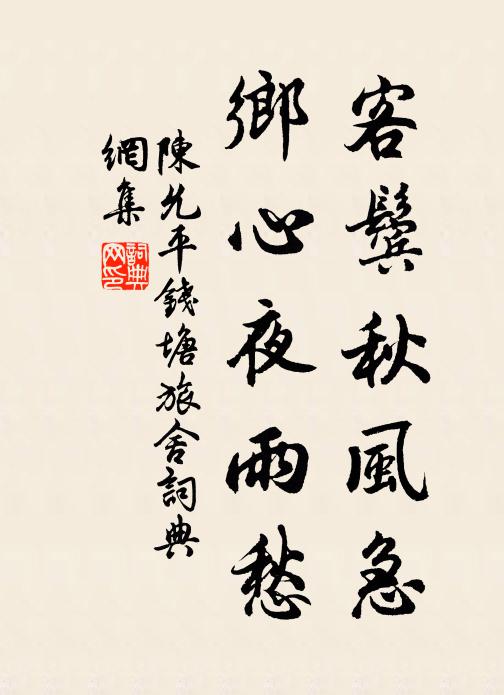 客鬢秋風急
鄉心夜雨愁
陳允平錢塘旅舍詞典
網集
詞典网印